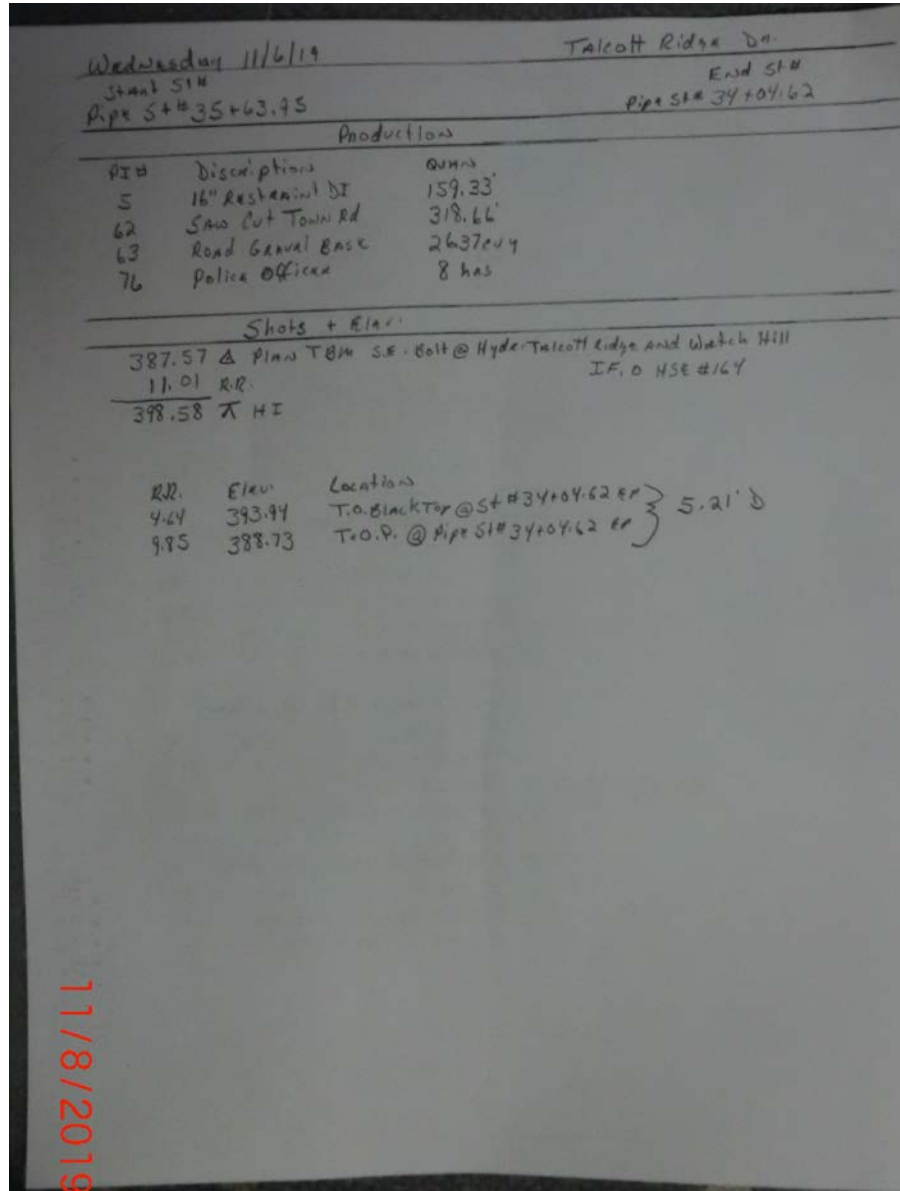 Wednesday 11/6/19 Talcott Ridge Dr.
Start St# End St#
Pipe St# 35+63.95 Pipe St# 34+04.62
Production
PI# Discription Quan
5 16" Restraint DI 159.33'
62 Saw Cut Town Rd 318.66'
63 Road Graval Base 26.37cuy
76 Police Officer 8 hrs
Shots + Elev.
387.57 Δ Plan TBM S.E. Bolt @ Hyde-Talcott Ridge and Watch Hill
11.01 R.R. I.F.O HSE #164
398.58 ⊼ HI
R.R. Elev. Location
4.64 393.94 T.O.BlackTop @ St #34+04.62 EP } 5.21' D
9.85 388.73 T.O.P. @ Pipe St# 34+04.62 EP
11/8/2019